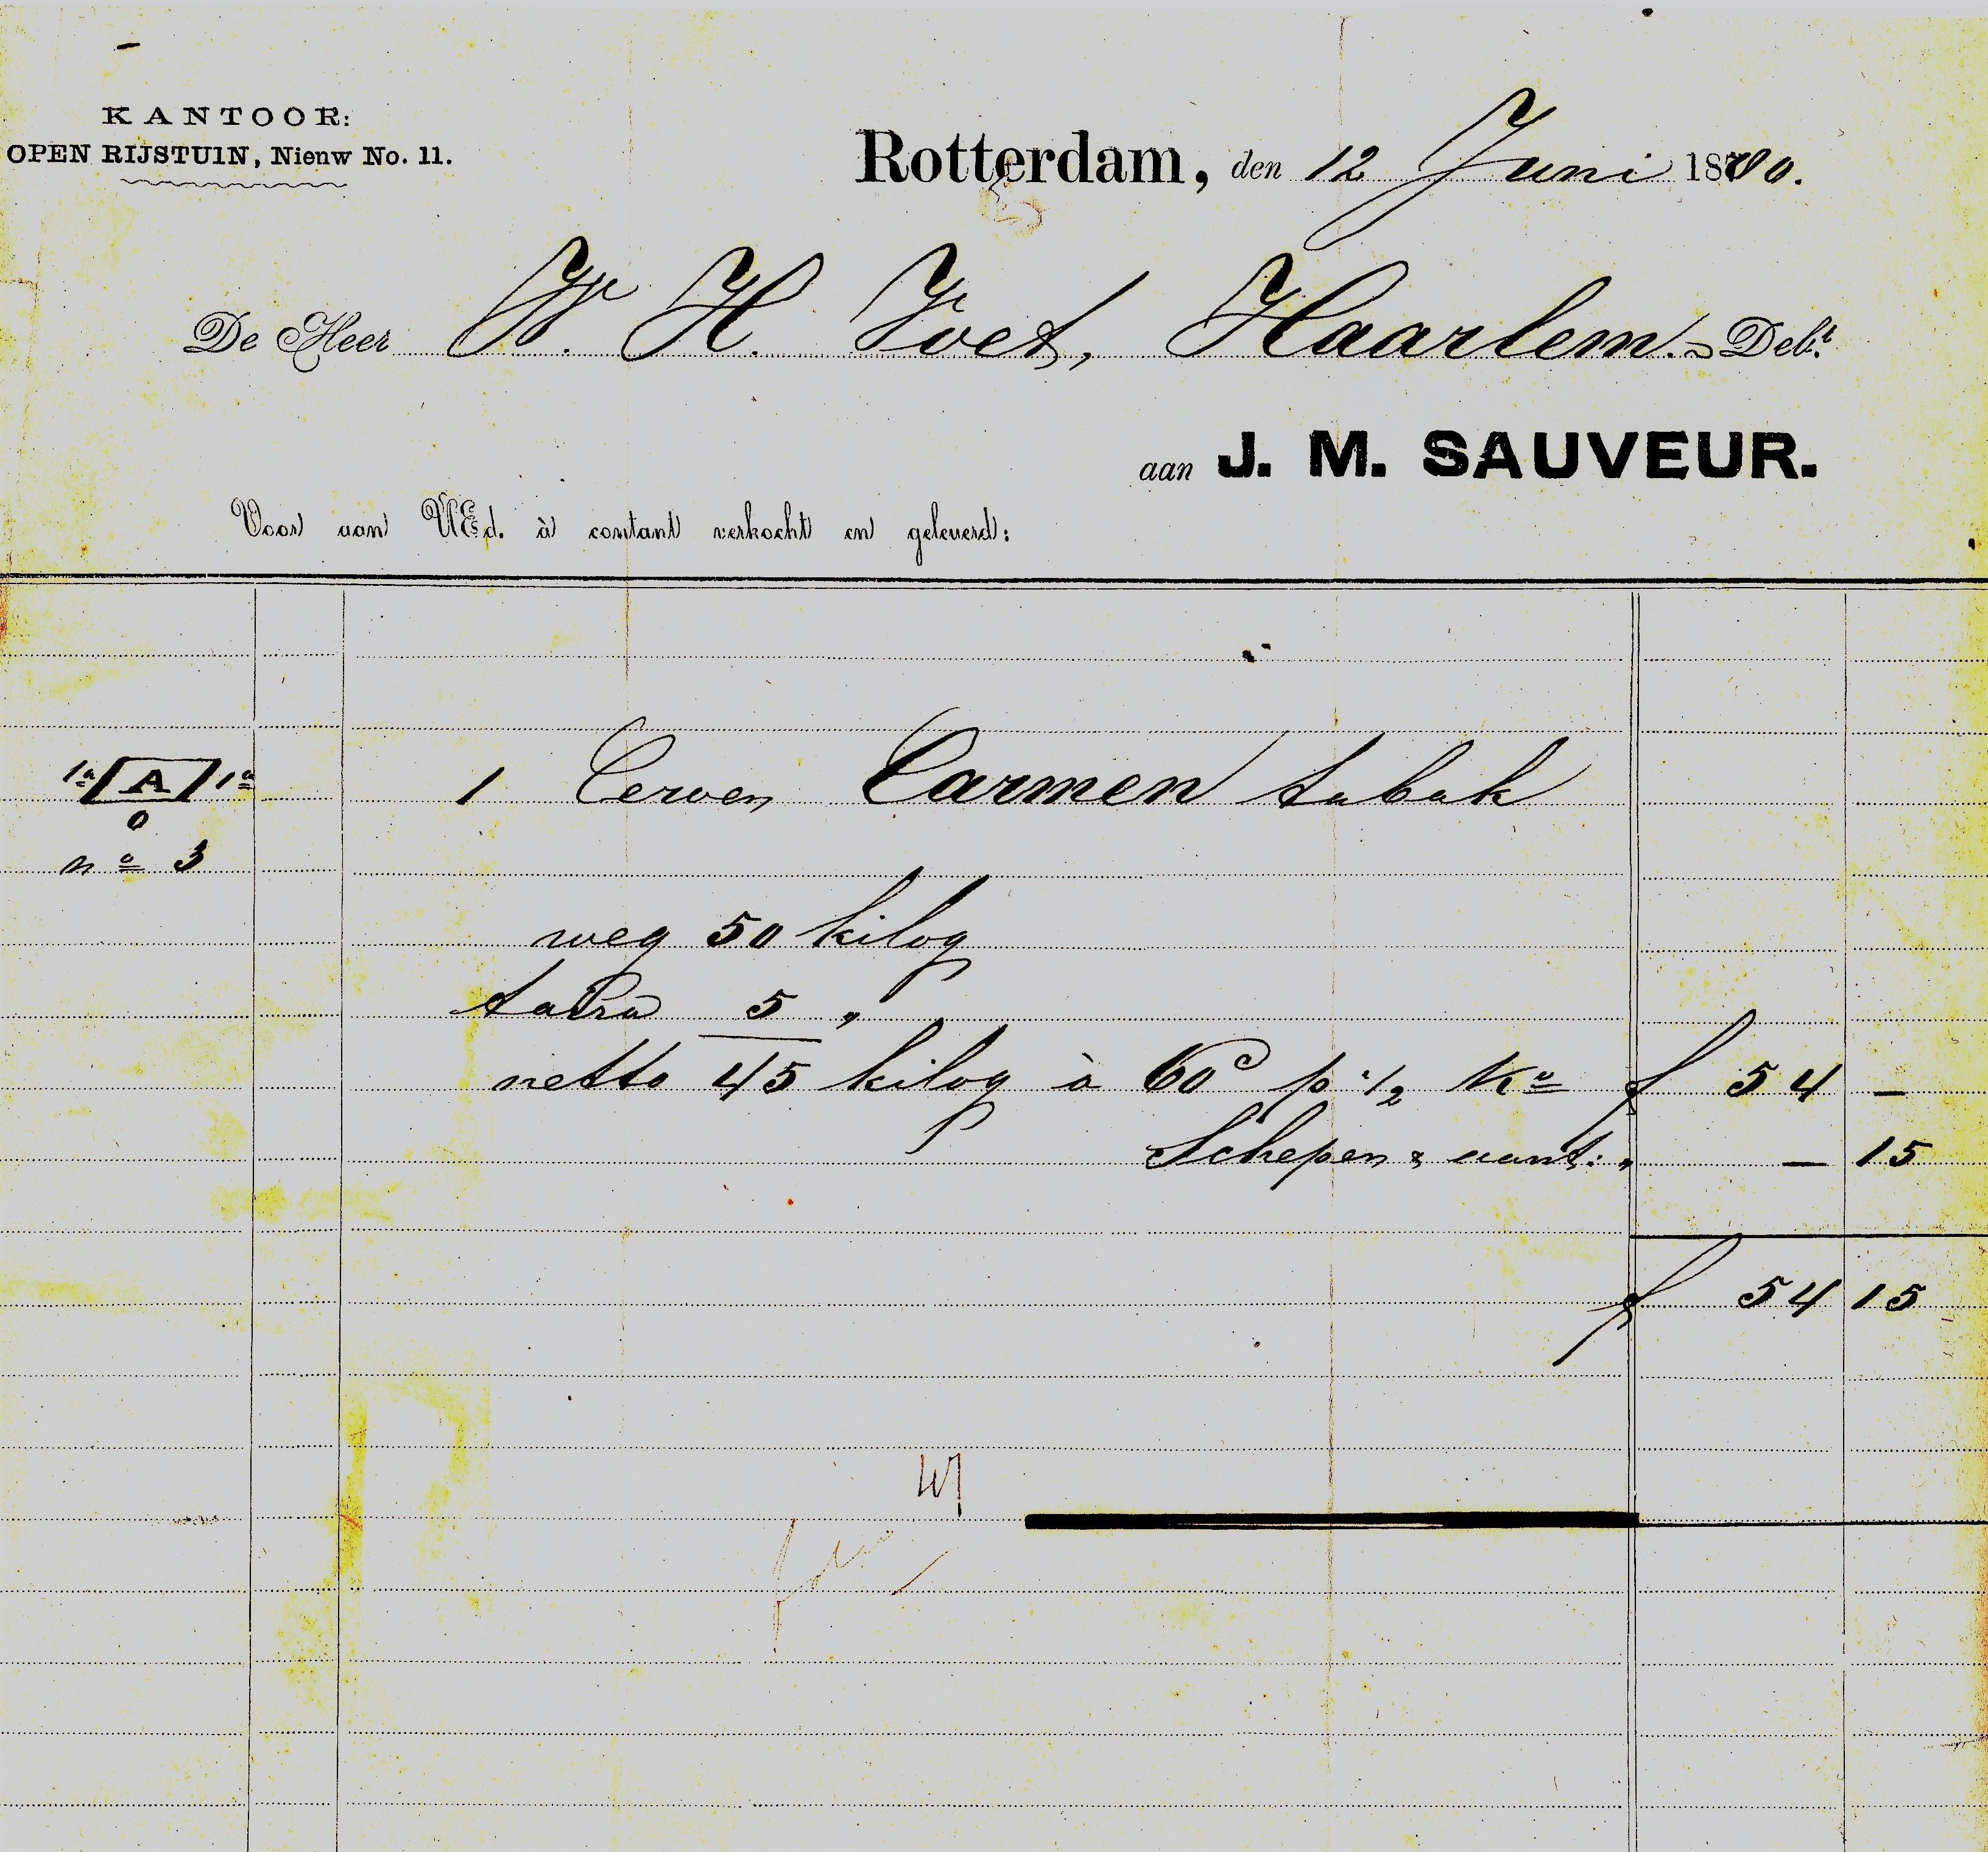 KANTOOR:
OPEN RIJSTUIN, Nieuw No. 11.
Rotterdam, den 12 Juni 1880.
De Heer W. H. Voet, Haarlem. Debt.
aan J. M. SAUVEUR.
Voor aan UEd. à contant verkocht en geleverd:
1a A 1a 1 Ceroen Carmen tabak
0
no 3
weg 50 kilog
tarra 5 "
netto 45 kilog à 60c p 1/2 Ko f 54 —
Schepen & cant: " — 15
f 54 15